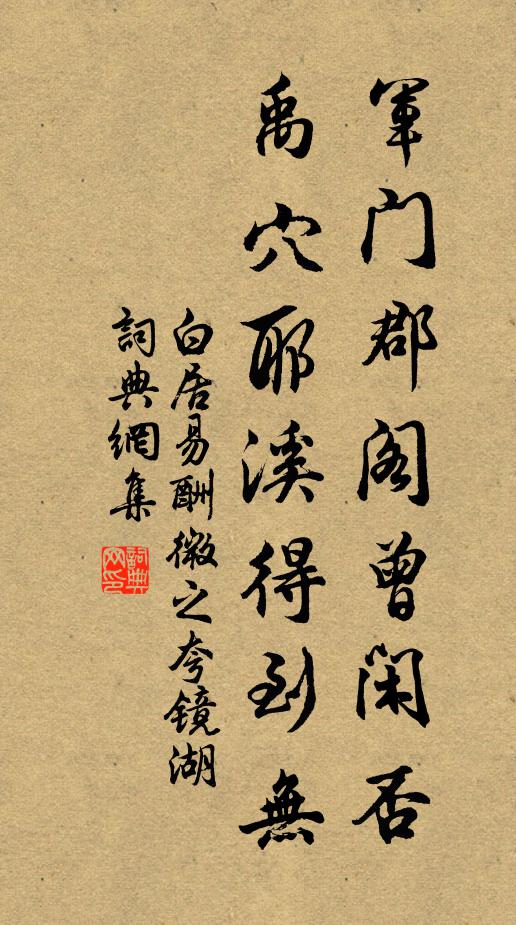 軍門郡阁曾闲否
禹穴耶溪得到無
白居易酬微之夸镜湖
詞典網集
詞典网印